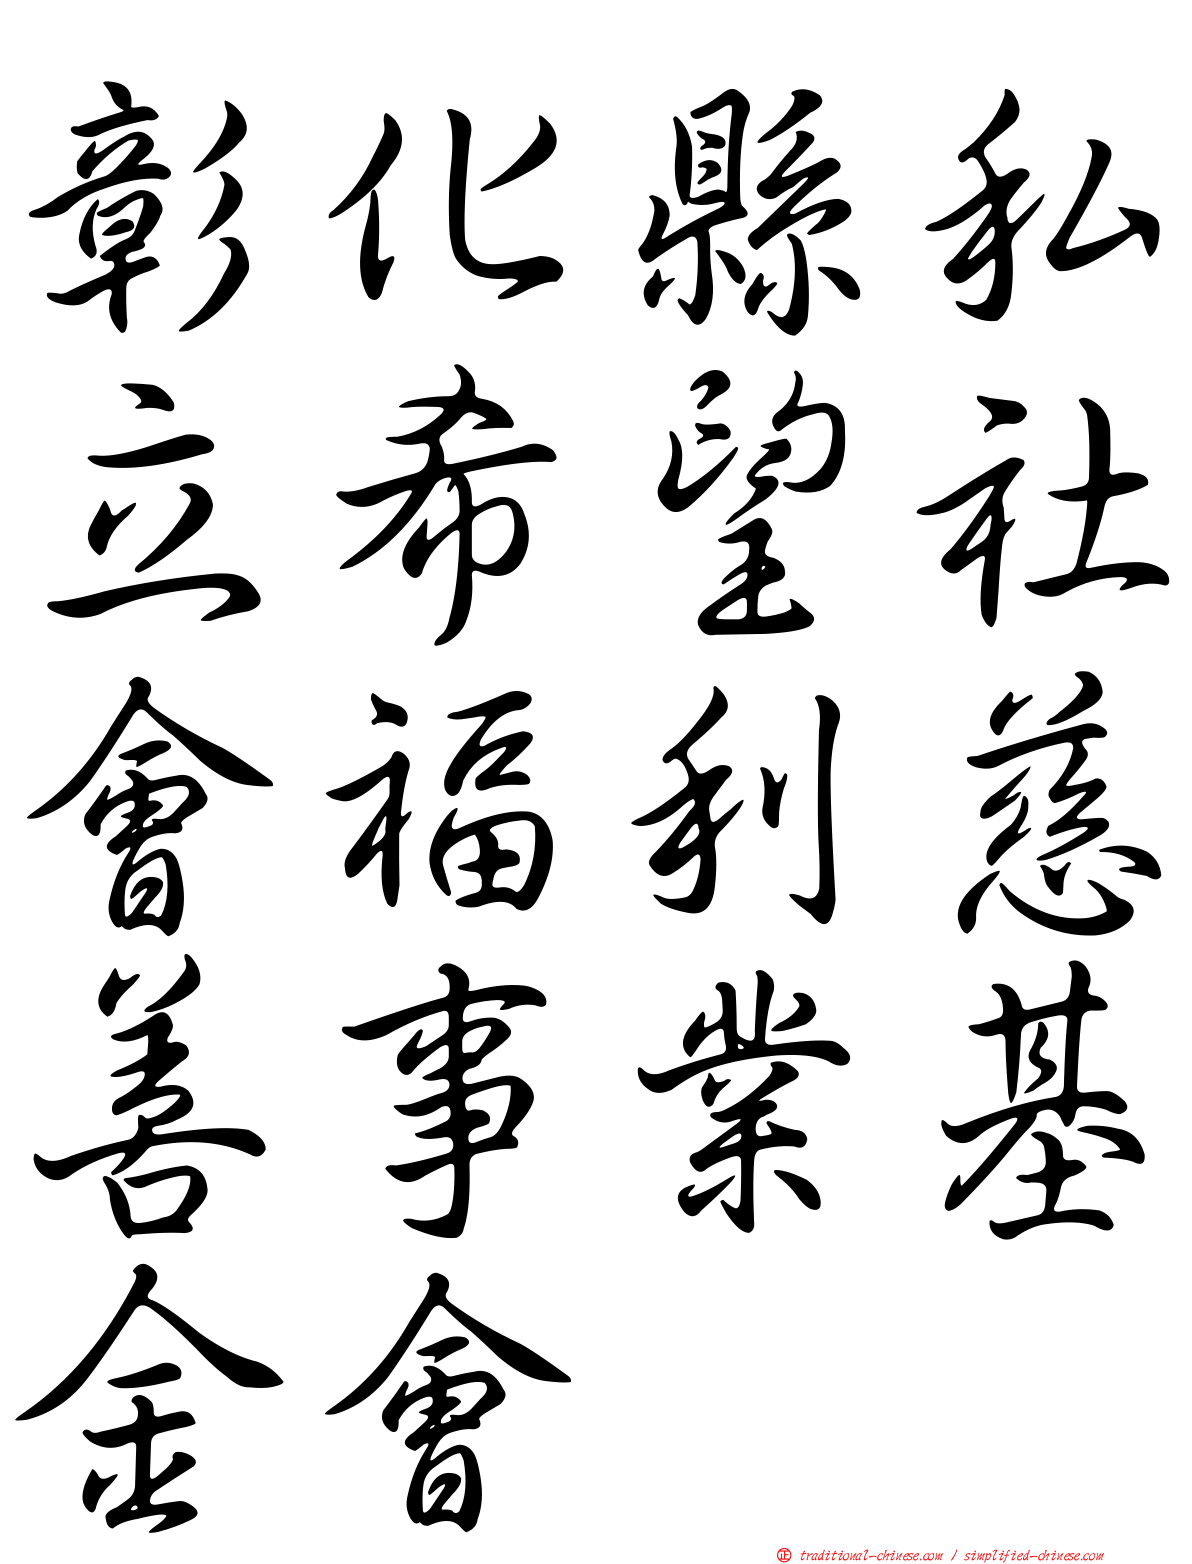 彰化縣私
立希望社
會福利慈
善事業基
金會
正 traditional-chinese.com / simplified-chinese.com